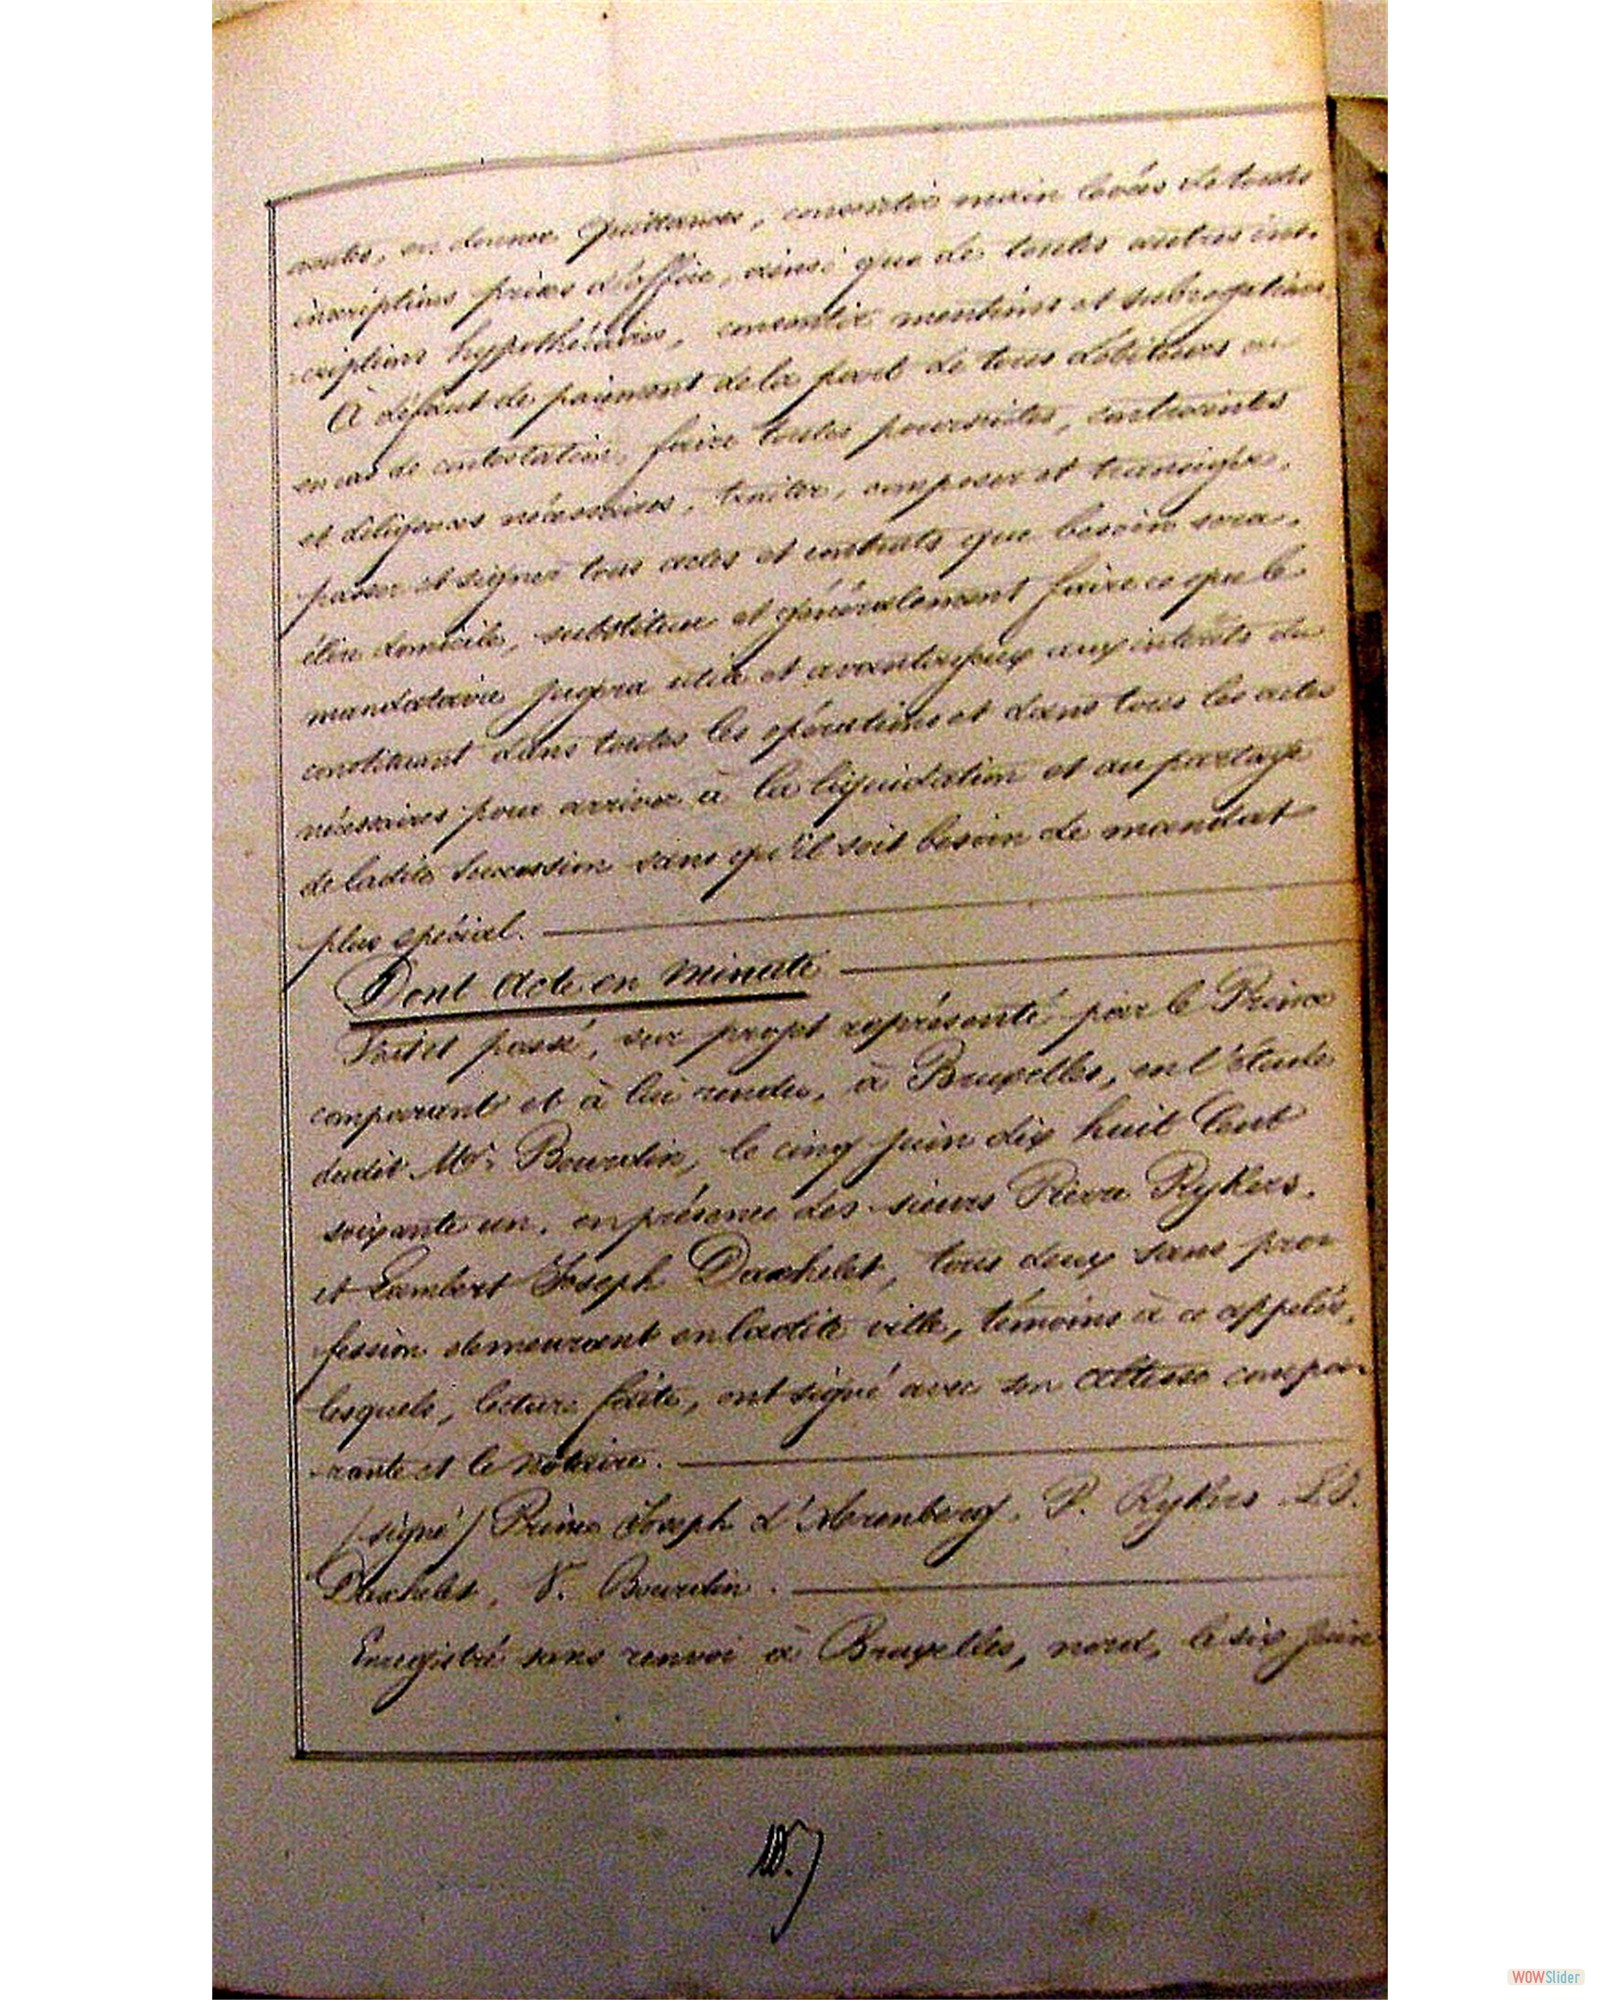 ventes, en donner quittances, consentir main levées de toutes
inscriptions prises d'office, ainsi que de toutes autres ins-
criptions hypothécaires, consentir mentions et subrogations
A défaut de paiement de la part de tous débiteurs ou
en cas de contestation, faire toutes poursuites, contraintes
et diligences nécessaires, traiter, composer et transiger,
passer et signer tous actes et contrats que besoin sera,
élire domicile, substituer et généralement faire ce que le
mandataire jugera utile et avantageux aux intérêts du
constituant dans toutes les opérations et dans tous les actes
nécessaires pour arriver à la liquidation et au partage
de ladite succession sans qu'il soit besoin de mandat
plus spécial.
Dont Acte en minute
Fait et passé, sur projet représenté par le Prince
comparant et à lui rendu, à Bruxelles, en l'étude
dudit Me. Bourdin, le cinq juin dix huit Cent
soixante un, en présence des sieurs Pierre Rykers,
et Lambert Joseph Daxhelet, tous deux sans pro-
fession demeurant en ladite ville, témoins à ce appelés,
lesquels, lecture faite, ont signé avec son altesse compa-
rante et le notaire.
(signé) Prince Joseph d'Arenberg, P. Rykers L.J.
Daxhelet, V. Bourdin.
Enregistré sans renvoi à Bruxelles, nord, le six juin
WOWSlider